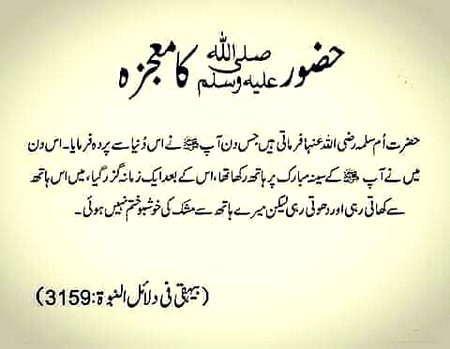 حضور صلی اللہ علیہ وسلم کا معجزہ
حضرت اُم سلمہ رضی اللہ عنہا فرماتی ہیں جس دن آپ ﷺ نے اس دُنیا سے پردہ فرمایا۔ اس دن
میں نے آپ ﷺ کے سینہ مبارک پر ہاتھ رکھا تھا، اس کے بعد ایک زمانہ گزر گیا، میں اس ہاتھ
سے کھاتی رہی اور دھوتی رہی لیکن میرے ہاتھ سے مشک کی خوشبو ختم نہیں ہوئی۔
(بیہقی فی دلائل النبوۃ:3159)